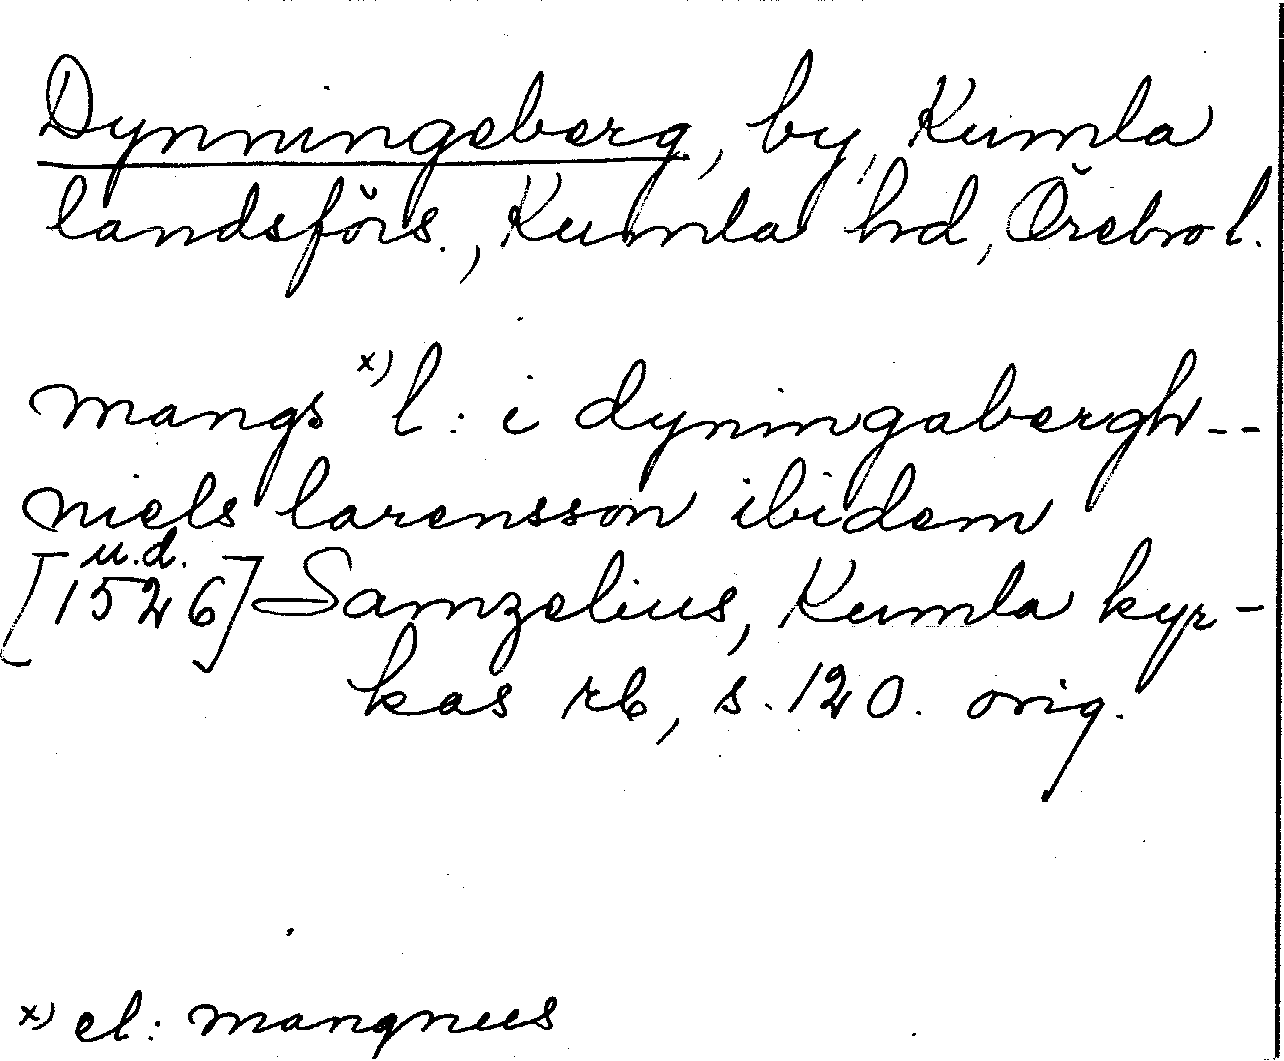 Dynningeberg, by, Kumla
landsförs., Kumla hd, Örebro l.
mangs x) l: i dyningabergh --
niels larensson ibidem
u.d.
[1526] Samzelius, Kumla kyr-
kas rb, s. 120. orig.
x) el: mangnus